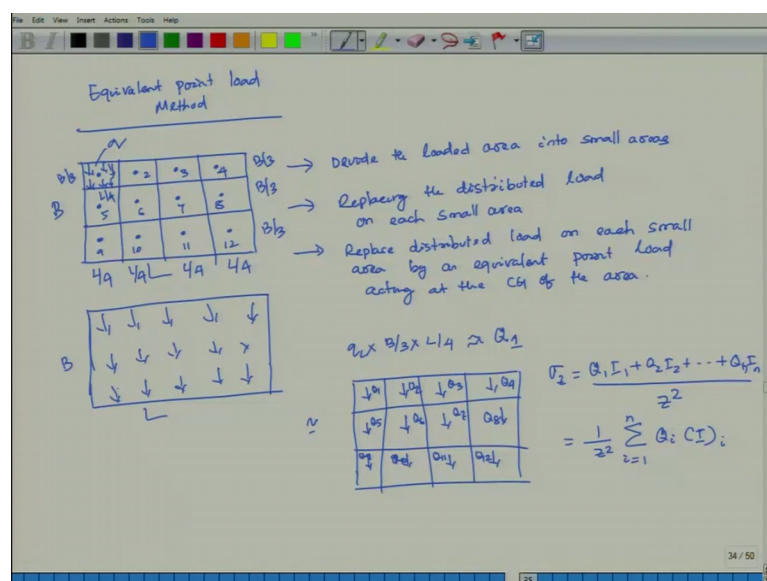 File Edit View Insert Actions Tools Help
B I
Equivalent point load
Method
q
B/3 • 2 • 3 • 4 B/3
B L/4 5 6 7 8 B/3
9 10 11 12 B/3
L/4 L/4 L L/4 L/4
→ Devide the loaded area into small areas
→ Replacing the distributed load
on each small area
→ Replace distributed load on each small
area by an equivalent point load
acting at the CG of the area.
B
L
q x B/3 x L/4 ≈ Q1
≈
↓Q1 ↓Q2 ↓Q3 ↓Q4
↓Q5 ↓Q6 ↓Q7 Q8↓
Q9↓ Q10↓ Q11↓ Q12↓
σz = Q1I1 + Q2I2 + --- + QnIn
z²
= 1/z² Σ Qi (I)i
n
i=1
34 / 50
25